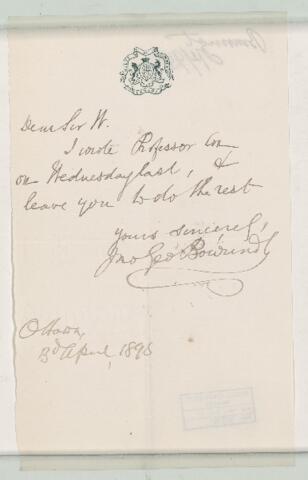 Dear Sir W.
I wrote Professor
on Wednesday last, &
leave you to do the rest
yours sincerely,
Jno Geo Bourinot
Ottawa,
3d April, 1895